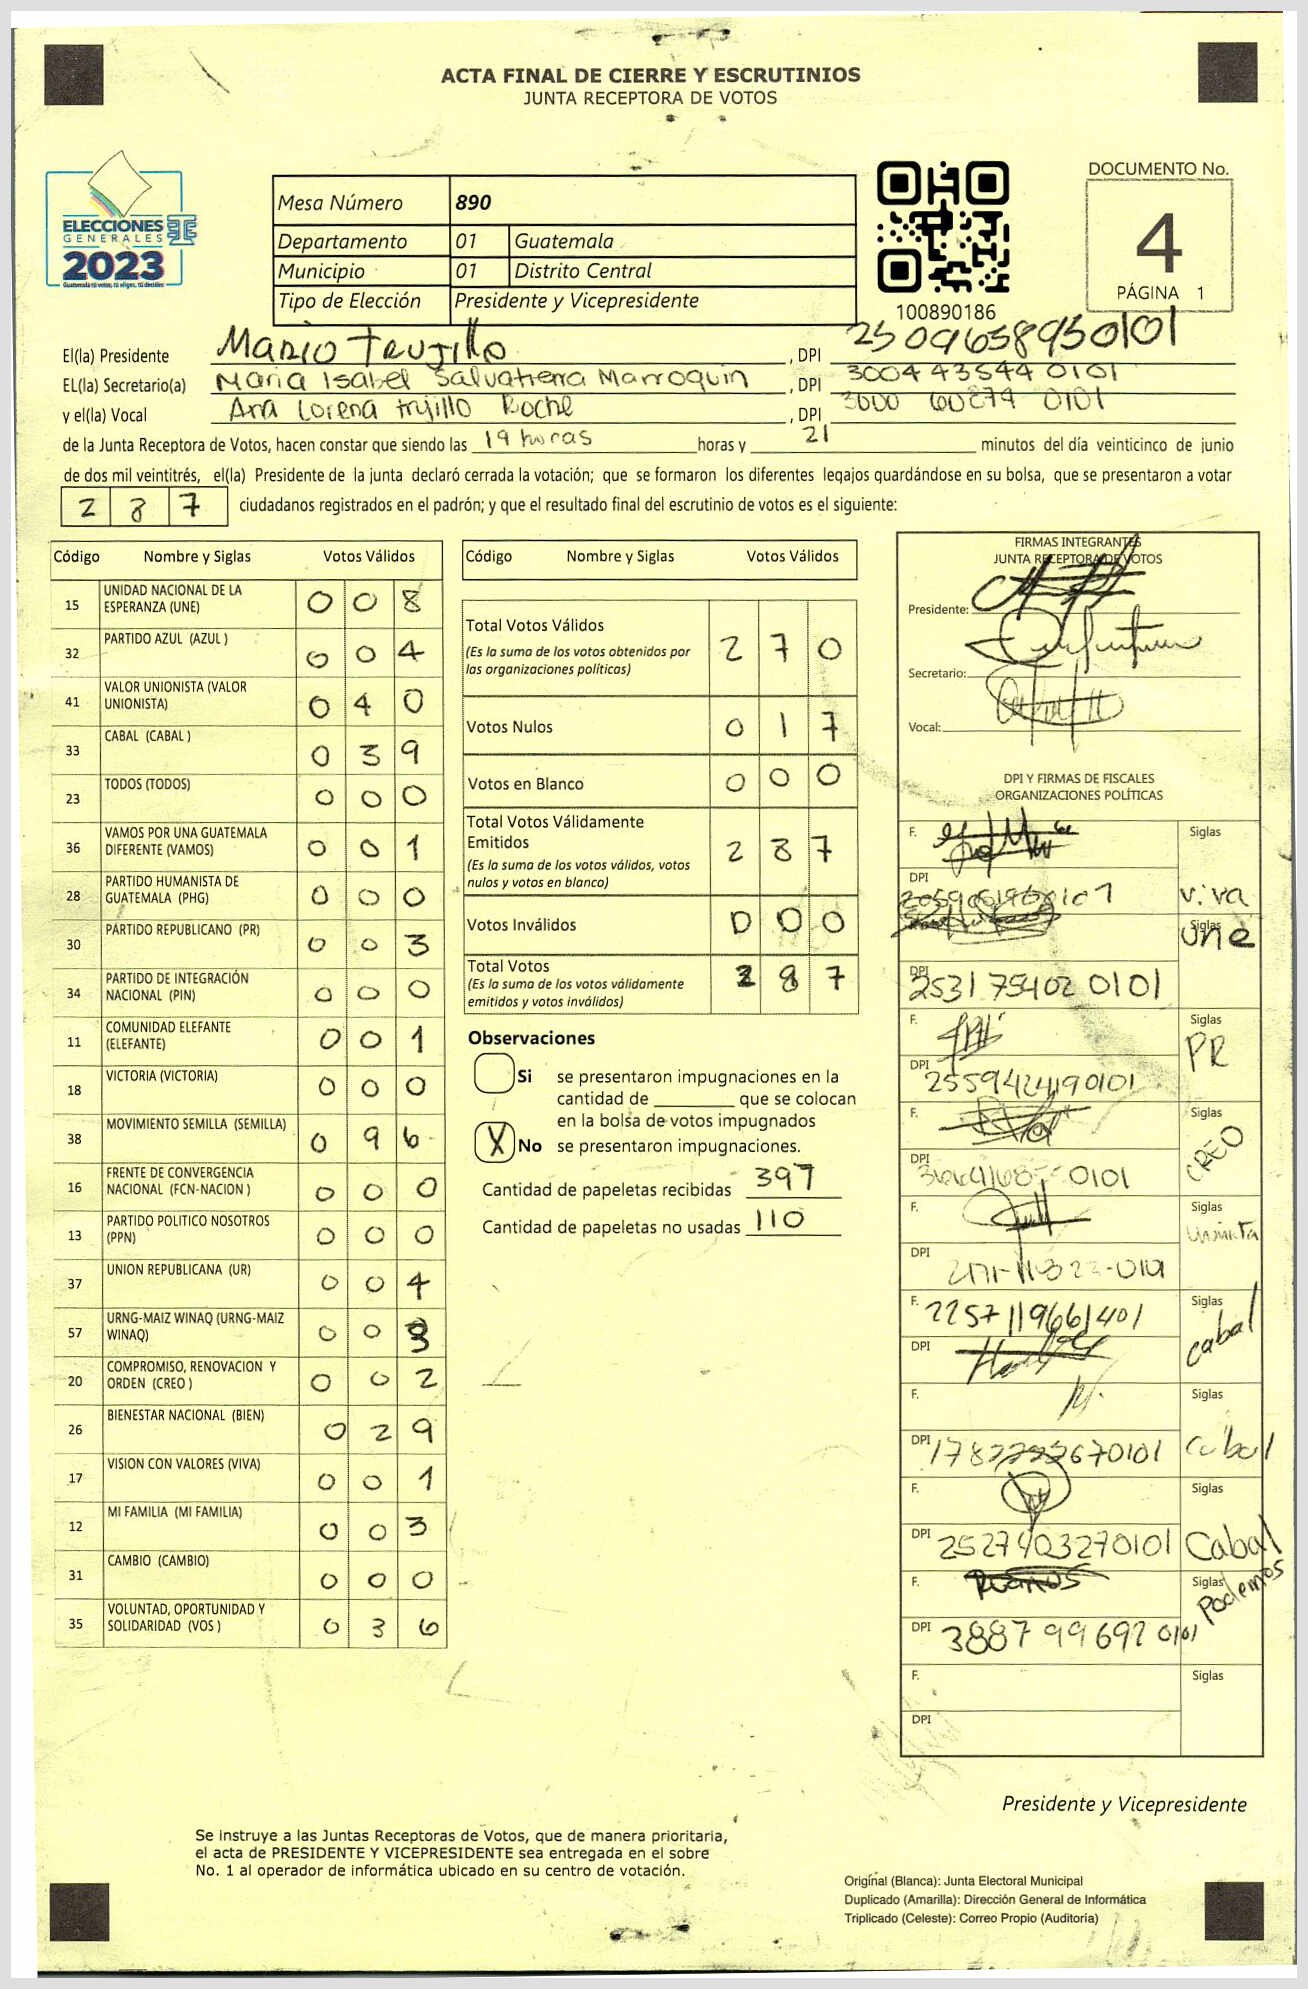 ACTA FINAL DE CIERRE Y ESCRUTINIOS
JUNTA RECEPTORA DE VOTOS
ELECCIONES
GENERALES
2023
Guatemala tú votas, tú eliges, tú decides
Mesa Número 890
Departamento 01 Guatemala
Municipio 01 Distrito Central
Tipo de Elección Presidente y Vicepresidente
100890186
DOCUMENTO No.
4
PÁGINA 1
El(la) Presidente Mario Trujillo , DPI 2509658950101
EL(la) Secretario(a) Maria Isabel Salvatierra Marroquin , DPI 3004435440101
y el(la) Vocal Ana Lorena trujillo Roche , DPI 3000 60879 0101
de la Junta Receptora de Votos, hacen constar que siendo las 19 horas horas y 21 minutos del día veinticinco de junio
de dos mil veintitrés, el(la) Presidente de la junta declaró cerrada la votación; que se formaron los diferentes legajos guardándose en su bolsa, que se presentaron a votar
2 8 7 ciudadanos registrados en el padrón; y que el resultado final del escrutinio de votos es el siguiente:
Código Nombre y Siglas Votos Válidos
15 UNIDAD NACIONAL DE LA ESPERANZA (UNE) 0 0 8
32 PARTIDO AZUL (AZUL ) 0 0 4
41 VALOR UNIONISTA (VALOR UNIONISTA) 0 4 0
33 CABAL (CABAL ) 0 3 9
23 TODOS (TODOS) 0 0 0
36 VAMOS POR UNA GUATEMALA DIFERENTE (VAMOS) 0 0 1
28 PARTIDO HUMANISTA DE GUATEMALA (PHG) 0 0 0
30 PARTIDO REPUBLICANO (PR) 0 0 3
34 PARTIDO DE INTEGRACIÓN NACIONAL (PIN) 0 0 0
11 COMUNIDAD ELEFANTE (ELEFANTE) 0 0 1
18 VICTORIA (VICTORIA) 0 0 0
38 MOVIMIENTO SEMILLA (SEMILLA) 0 9 6
16 FRENTE DE CONVERGENCIA NACIONAL (FCN-NACION ) 0 0 0
13 PARTIDO POLITICO NOSOTROS (PPN) 0 0 0
37 UNION REPUBLICANA (UR) 0 0 4
57 URNG-MAIZ WINAQ (URNG-MAIZ WINAQ) 0 0 3
20 COMPROMISO, RENOVACION Y ORDEN (CREO ) 0 0 2
26 BIENESTAR NACIONAL (BIEN) 0 2 9
17 VISION CON VALORES (VIVA) 0 0 1
12 MI FAMILIA (MI FAMILIA) 0 0 3
31 CAMBIO (CAMBIO) 0 0 0
35 VOLUNTAD, OPORTUNIDAD Y SOLIDARIDAD (VOS ) 0 3 6
Código Nombre y Siglas Votos Válidos
Total Votos Válidos 2 7 0
(Es la suma de los votos obtenidos por
las organizaciones políticas)
Votos Nulos 0 1 7
Votos en Blanco 0 0 0
Total Votos Válidamente
Emitidos 2 8 7
(Es la suma de los votos válidos, votos
nulos y votos en blanco)
Votos Inválidos 0 0 0
Total Votos 2 8 7
(Es la suma de los votos válidamente
emitidos y votos inválidos)
Observaciones
Si se presentaron impugnaciones en la
cantidad de ________ que se colocan
en la bolsa de votos impugnados
X No se presentaron impugnaciones.
Cantidad de papeletas recibidas 397
Cantidad de papeletas no usadas 110
FIRMAS INTEGRANTES
JUNTA RECEPTORA DE VOTOS
Presidente:
Secretario:
Vocal:
DPI Y FIRMAS DE FISCALES
ORGANIZACIONES POLÍTICAS
F. Siglas
DPI viva
Siglas une
DPI 2531 75402 0101
F. Siglas PR
DPI 2559424190101
F. Siglas CREO
DPI
F. Siglas
DPI
F. 2257119661401 Siglas cabal
DPI
F. Siglas
DPI Cabal
F. Siglas
DPI 2527403270101 Cabal
F. Siglas Podemos
DPI 3887996920101
F. Siglas
DPI
Presidente y Vicepresidente
Se instruye a las Juntas Receptoras de Votos, que de manera prioritaria,
el acta de PRESIDENTE Y VICEPRESIDENTE sea entregada en el sobre
No. 1 al operador de informática ubicado en su centro de votación.
Original (Blanca): Junta Electoral Municipal
Duplicado (Amarilla): Dirección General de Informática
Triplicado (Celeste): Correo Propio (Auditoría)